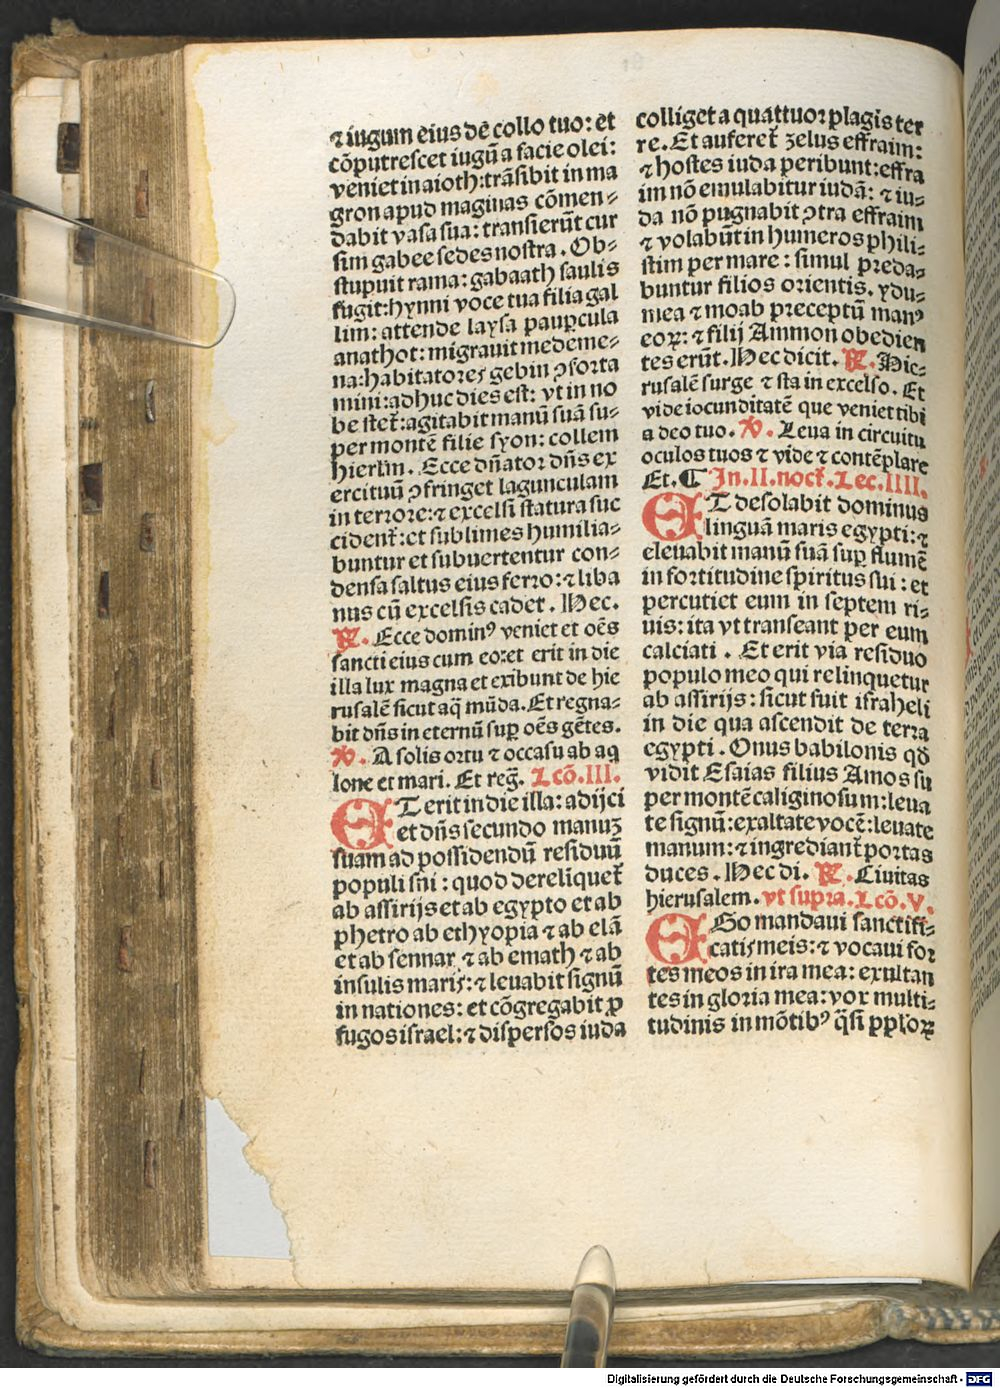 ⁊ iugum eius dē collo tuo: et
cōputrescet iugū a facie olei:
veniet in aioth: trāsibit in ma
gron apud maginas cōmen⸗
dabit vasa sua: transierūt cur
sim gabee sedes nostra. Ob⸗
stupuit rama: gabaath saulis
fugit: hynni voce tua filia gal
lim: attende laysa paupcula
anathot: migrauit medeme⸗
na: habitatores gebin ꝯforta
mini: adhuc dies est: vt in no
be stet᷑: agitabit manū suā su⸗
per montē filie syon: collem
hierlm̄. Ecce dn̄ator dn̄s ex
ercituū ꝯfringet lagunculam
in terrore: ⁊ excelsi statura suc
cident᷑: et sublimes humilia⸗
buntur et subuertentur con⸗
densa saltus eius ferro: ⁊ liba
nus cū excelsis cadet. Hec.
℟. Ecce domin⁹ veniet et oēs
sancti eius cum eo: et erit in die
illa lux magna et exibunt de hie
rusalē sicut aq̄ mūda. Et regna⸗
bit dn̄s in eternū sup oēs gētes.
℣. A solis ortu ⁊ occasu ab aq
lone et mari. Et reḡ. Lcō. III.
ET erit in die illa: adijci
et dn̄s secundo manuꝫ
suam ad possidendū residuū
populi sni: quod derelíquet᷑
ab assirijs et ab egypto et ab
phetro ab ethyopia ⁊ ab elā
et ab sennar ⁊ ab emath ⁊ ab
insulis maris: ⁊ leuabit signū
in nationes: et cōgregabit ꝓ
fugos israel: ⁊ dispersos iuda
colliget a quattuor plagis ter
re. Et auferet᷑ zelus effraim:
⁊ hostes iuda peribunt: effra
im nō emulabitur iudā: ⁊ iu⸗
da nō pugnabit ꝯtra effraim
⁊ volabūt in humeros phili⸗
stim per mare: simul preda⸗
buntur filios orientis. ydu⸗
mea ⁊ moab preceptū man⁹
eoꝝ: ⁊ filij Ammon obedien
tes erūt. Hec dicit. ℟. Hie⸗
rusalē surge ⁊ sta in excelso. Et
vide iocunditatē que veniet tibi
a deo tuo. ℣. Leua in circuitu
oculos tuos ⁊ vide ⁊ contēplare
Et. ¶ In. II. noct᷑. Lec. IIII.
ET desolabit dominus
linguā maris egypti: ⁊
eleuabit manū suā sup flumē
in fortitudine spiritus sui: et
percutiet eum in septem ri⸗
uis: ita vt transeant per eum
calciati. Et erit via residuo
populo meo qui relinquetur
ab assirijs: sicut fuit israheli
in die qua ascendit de terra
egypti. Onus babilonis qd̄
vidit Esaias filius Amos su
per montē caliginosum: leua
te signū: exaltate vocē: leuate
manum: ⁊ ingrediant᷑ portas
duces. Hec di. ℟. Ciuitas
hierusalem. vt supra. Lcō. V.
EGo mandaui sanctifi⸗
catis meis: ⁊ vocaui for
tes meos in ira mea: exultan
tes in gloria mea: vox multi⸗
tudinis in mōtib⁹ q̄si pploꝝ
Digitalisierung gefördert durch die Deutsche Forschungsgemeinschaft - DFG